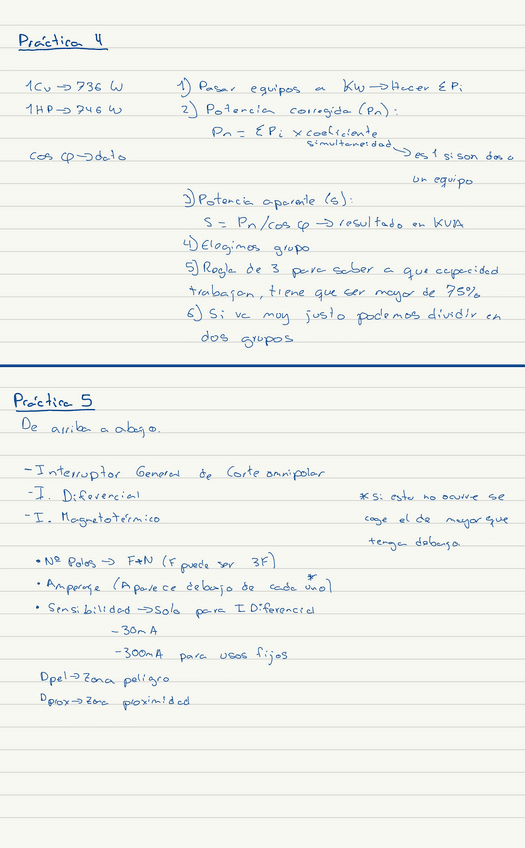 Práctica 4
1Cv → 736 W
1HP → 746 W
cos φ → dato
1) Pasar equipos a KW → Hacer ΣPi
2) Potencia corregida (Pn):
Pn = ΣPi x coeficiente simultaneidad → es 1 si son dos o un equipo
3) Potencia aparente (s):
S = Pn/cos φ → resultado en KVA
4) Elegimos grupo
5) Regla de 3 para saber a que capacidad
trabajan, tiene que ser mayor de 75%
6) Si va muy justo podemos dividir en
dos grupos
Práctica 5
De arriba a abajo.
- Interruptor General de Corte omnipolar
- I. Diferencial
- I. Magnetotérmico
* Si esto no ocurre se
coge el de mayor que
tenga debajo
• Nº Polos → F+N (F puede ser 3F)
• Amperage (Aparece debajo de cada uno)*
• Sensibilidad → Solo para I Diferencial
- 30mA
- 300mA para usos fijos
Dpel → Zona peligro
Dprox → Zona proximidad